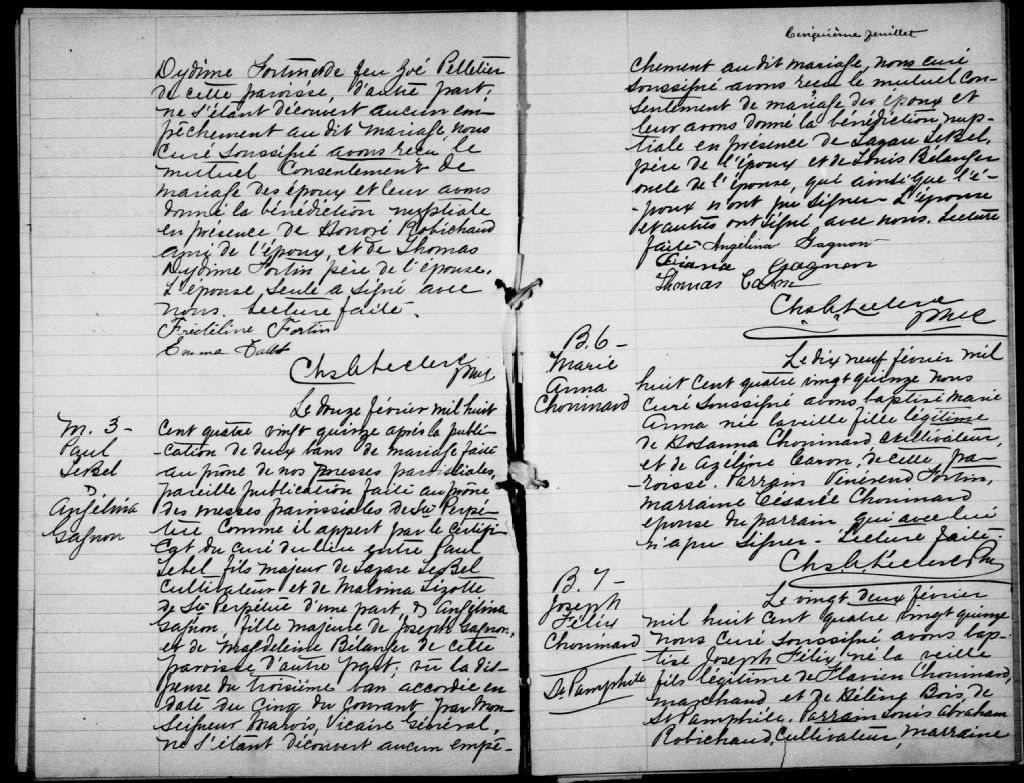 Dydime Fortin et de feu Zoé Pelletier
de cette paroisse, d'autre part,
ne s'étant découvert aucun em-
pêchement au dit mariage, nous
Curé soussigné avons reçu le
mutuel Consentement de
mariage des époux et leur avons
donné la bénédiction nuptiale
en présence de Honoré Robichaud
ami de l'époux et de Thomas
Dydime Fortin père de l'épouse.
L'épouse seule a signé avec
nous. Lecture faite.
Fridéline Fortin
Emma Talbot
Chs A Leclerc Ptre
M. 3-
Paul
LeBel
&
Angélina
Gagnon
Le douze février mil huit
Cent quatre vingt quinze après la publi-
-cation de deux bans de mariage faite
au prône de nos messes paroissiales,
pareille publication faite au prône
des messes paroissiales de Ste Perpé-
tue comme il appert par le certifi-
cat du curé du lieu entre Paul
Lebel fils majeur de Lazare LeBel
Cultivateur et de Malvina Lizotte
de Ste Perpétue d'une part, & Angélina
Gagnon fille majeure de Joseph Gagnon,
et de Magdeleine Bélanger de cette
paroisse d'autre part; vu la dis-
pense du troisième ban accordée en
date du Cinq du Courant par Mon
Seigneur Marois, Vicaire Général,
ne s'étant découvert aucun empê-
Cinquième feuillet
chement au dit mariage, nous curé
soussigné avons reçu le mutuel con-
sentement de mariage des époux et
leur avons donné la bénédiction nup-
tiale en présence de Lazare LeBel,
père de l'époux et de Louis Bélanger
oncle de l'épouse, qui ainsi que l'é-
-poux n'ont pu signer. L'épouse
et autres ont signé avec nous. Lecture
faite Angélina Gagnon
Diana Gagnon
Thomas Caron
Chs A Leclerc Ptre
B. 6-
Marie
Anna
Chouinard
Le dix neuf février mil
huit cent quatre vingt quinze nous
curé soussigné avons baptisé Marie
Anna née la veille fille légitime
de Hosanna Chouinard cultivateur,
et de Azéline Caron, de cette pa-
roisse. Parrain Vénérend Fortin,
marraine Césarie Chouinard
épouse du parrain qui avec lui
n'a pu signer - Lecture faite.
Chs A Leclerc Ptre
B. 7-
Joseph
Félix
Chouinard
St Pamphile
Le vingt deux février
mil huit cent quatre vingt quinze
nous Curé soussigné avons bap-
tisé Joseph Félix, né la veille
fils légitime de Flavien Chouinard,
marchand et de Déline Bois de
St Pamphile. Parrain Louis Abraham
Robichaud, Cultivateur, marraine